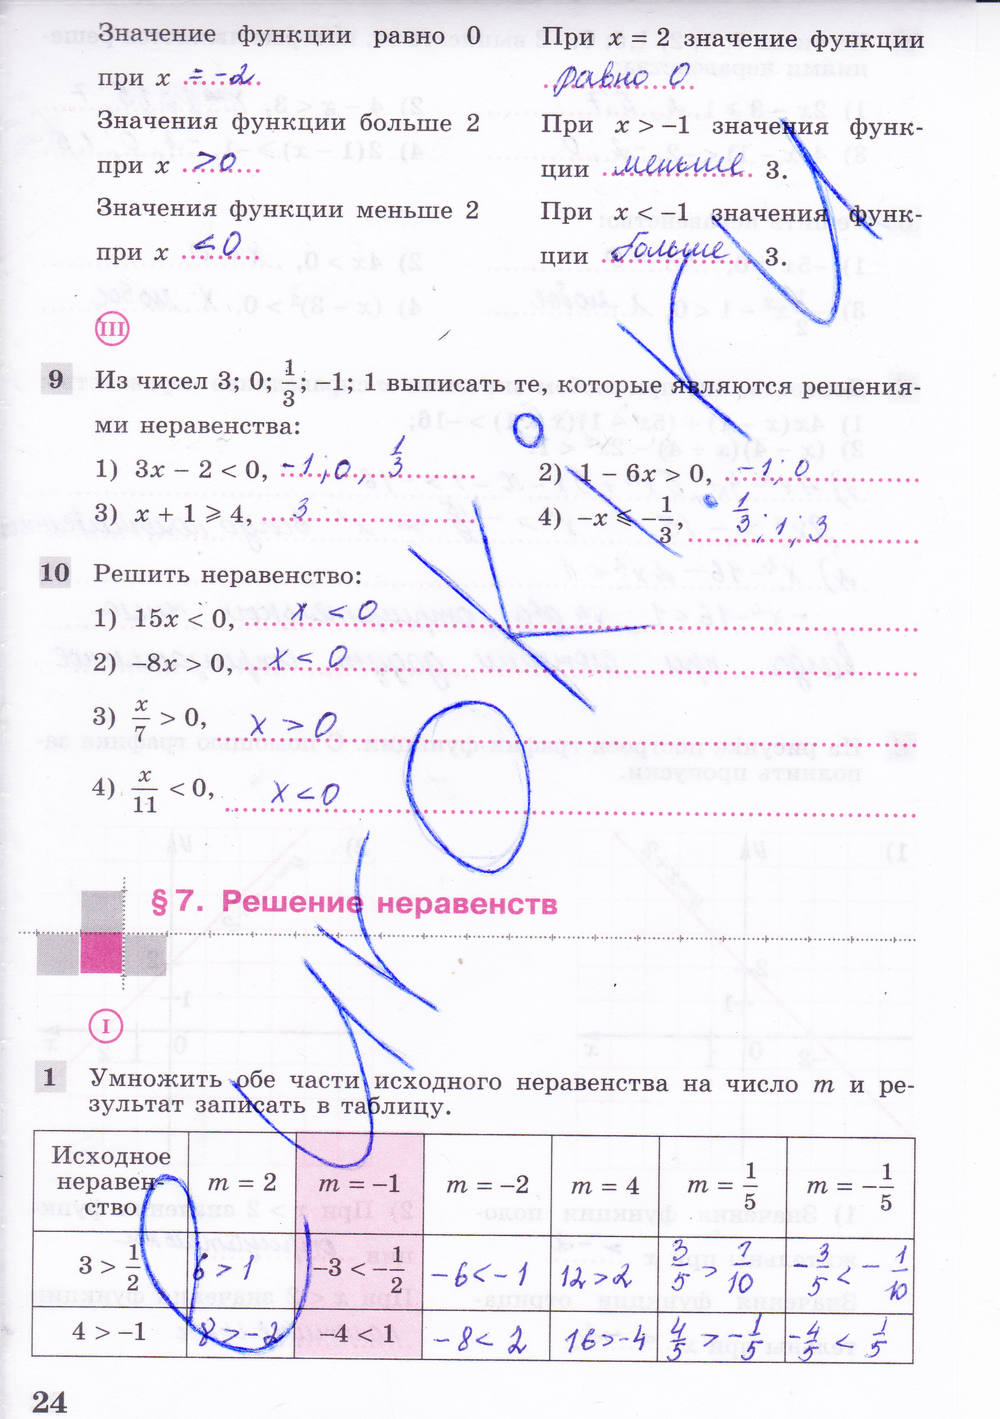 Значение функции равно 0
при x = -2
Значения функции больше 2
при x >0
Значения функции меньше 2
при x <0
При x = 2 значение функции
равно 0
При x > −1 значения функ-
ции меньше 3.
При x < −1 значения функ-
ции больше 3.
III
9 Из чисел 3; 0; 1/3; −1; 1 выписать те, которые являются решения-
ми неравенства:
1) 3x − 2 < 0, -1; 0, 1/3
2) 1 − 6x > 0, -1; 0
3) x + 1 ⩾ 4, 3
4) −x ⩽ −1/3, 1/3; 1; 3
10 Решить неравенство:
1) 15x < 0, x < 0
2) −8x > 0, x < 0
3) x/7 > 0, x > 0
4) x/11 < 0, x < 0
§ 7. Решение неравенств
I
1 Умножить обе части исходного неравенства на число m и ре-
зультат записать в таблицу.
Исходное неравен-ство m = 2 m = −1 m = −2 m = 4 m = 1/5 m = −1/5
3 > 1/2 6 > 1 −3 < −1/2 -6 < -1 12 > 2 3/5 > 1/10 -3/5 < -1/10
4 > −1 8 > -2 −4 < 1 -8 < 2 16 > -4 4/5 > -1/5 -4/5 < 1/5
24